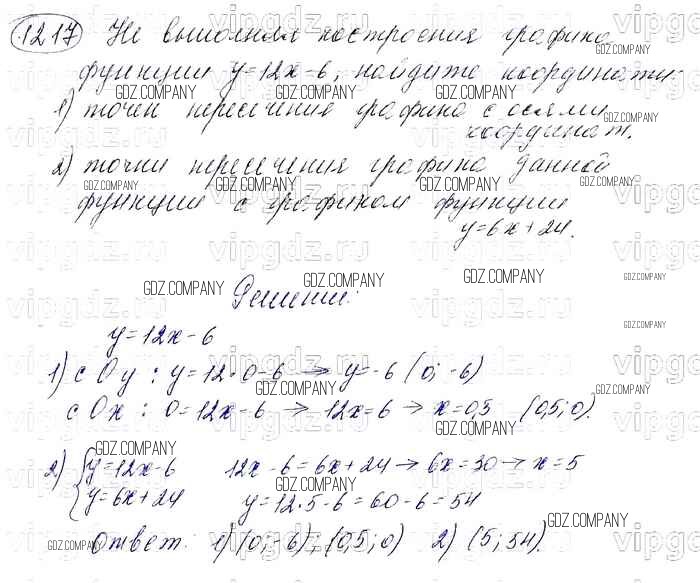 1217 Не выполняя построения графика
функции y=12x-6, найдите координаты:
1) точек пересечения графика с осями
координат.
2) точки пересечения графика данной
функции с графиком функции
y=6x+24.
Решение:
y=12x-6
1) с Oy : y=12·0-6 → y=-6 (0; -6)
с Ox : 0=12x-6 → 12x=6 → x=0,5 (0,5; 0).
2) {y=12x-6 12x-6=6x+24 → 6x=30 → x=5
{y=6x+24 y=12·5-6=60-6=54
Ответ: 1) (0; -6), (0,5; 0) 2) (5; 54).